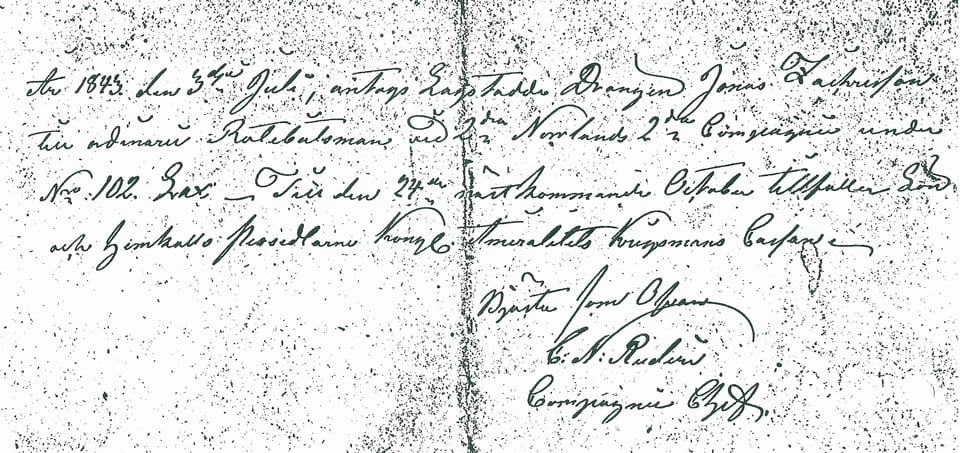 År 1843 den 3dje Juli, antogs Lagstadde Drängen Jonas Zachrisson
till ordinarie Rotebåtsman vid 2dra Norrlands 2dra Compagnie under
Nro 102. Lax – Till den 24de nästkommande October tillfaller Lön
och hemkalls persedlarne Kongl. Amiralitets Krigsmans Cassan
som Ofvan
C: N: Rudin
Compagnie Chef.